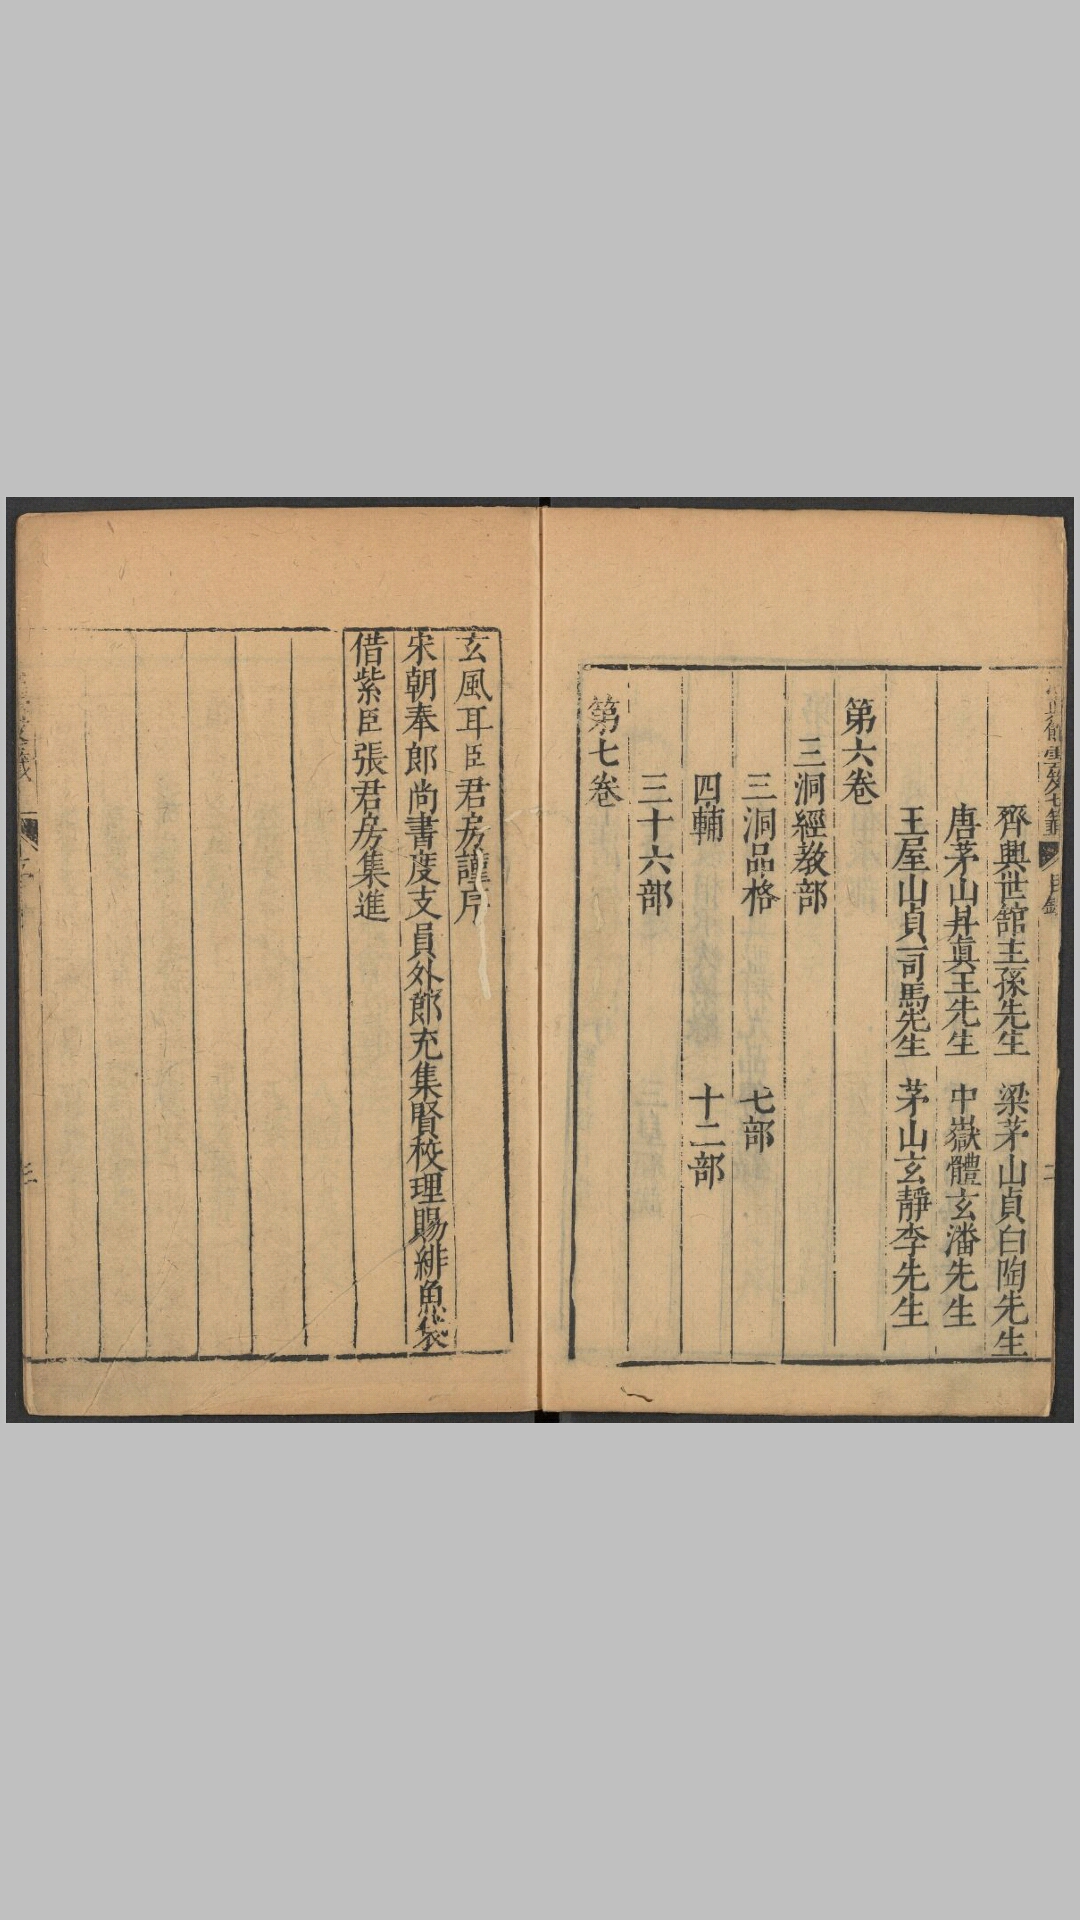 齊興世館主孫先生　梁茅山貞白陶先生
唐茅山昇眞王先生　中嶽體玄潘先生
王屋山貞一司馬先生　茅山玄靜李先生
第六卷
三洞經教部
三洞品格　七部
四輔　十二部
三十六部
第七卷
玄風耳臣君房謹序
宋朝奉郎尚書度支員外郎充集賢校理賜緋魚袋
借紫臣張君房集進